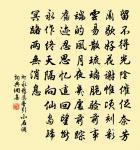 留不得光陰催促奈芳
蘭歇好花謝惟頃刻彩
雲易散琉璃脆驗前事
端的風月夜幾處前蹤
舊跡忍思憶這回望斷
永作終天隔向仙島歸
冥路兩無消息
柳永秋蕊香引小石調